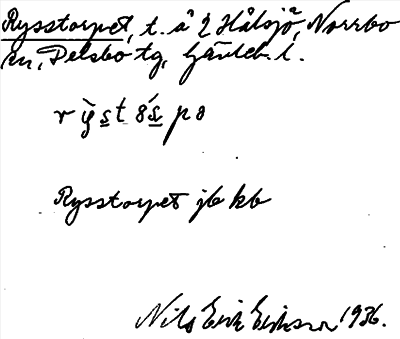 Rysstorpet, t. å 2 Hålsjö, Norrbo
sn, Delsbo tg, Gävleb. l.
Rysstorpet jb kb
Nils Erik Eriksson 1936.